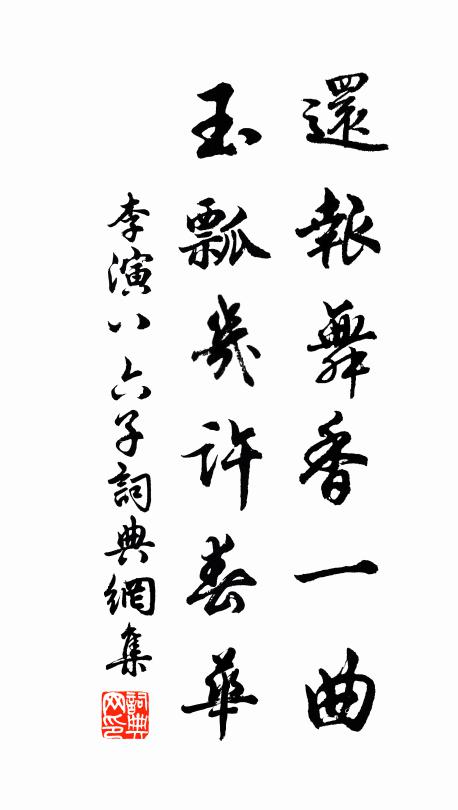 還報舞香一曲
玉瓢幾許春華
李演八六子詞典網集
詞典網印